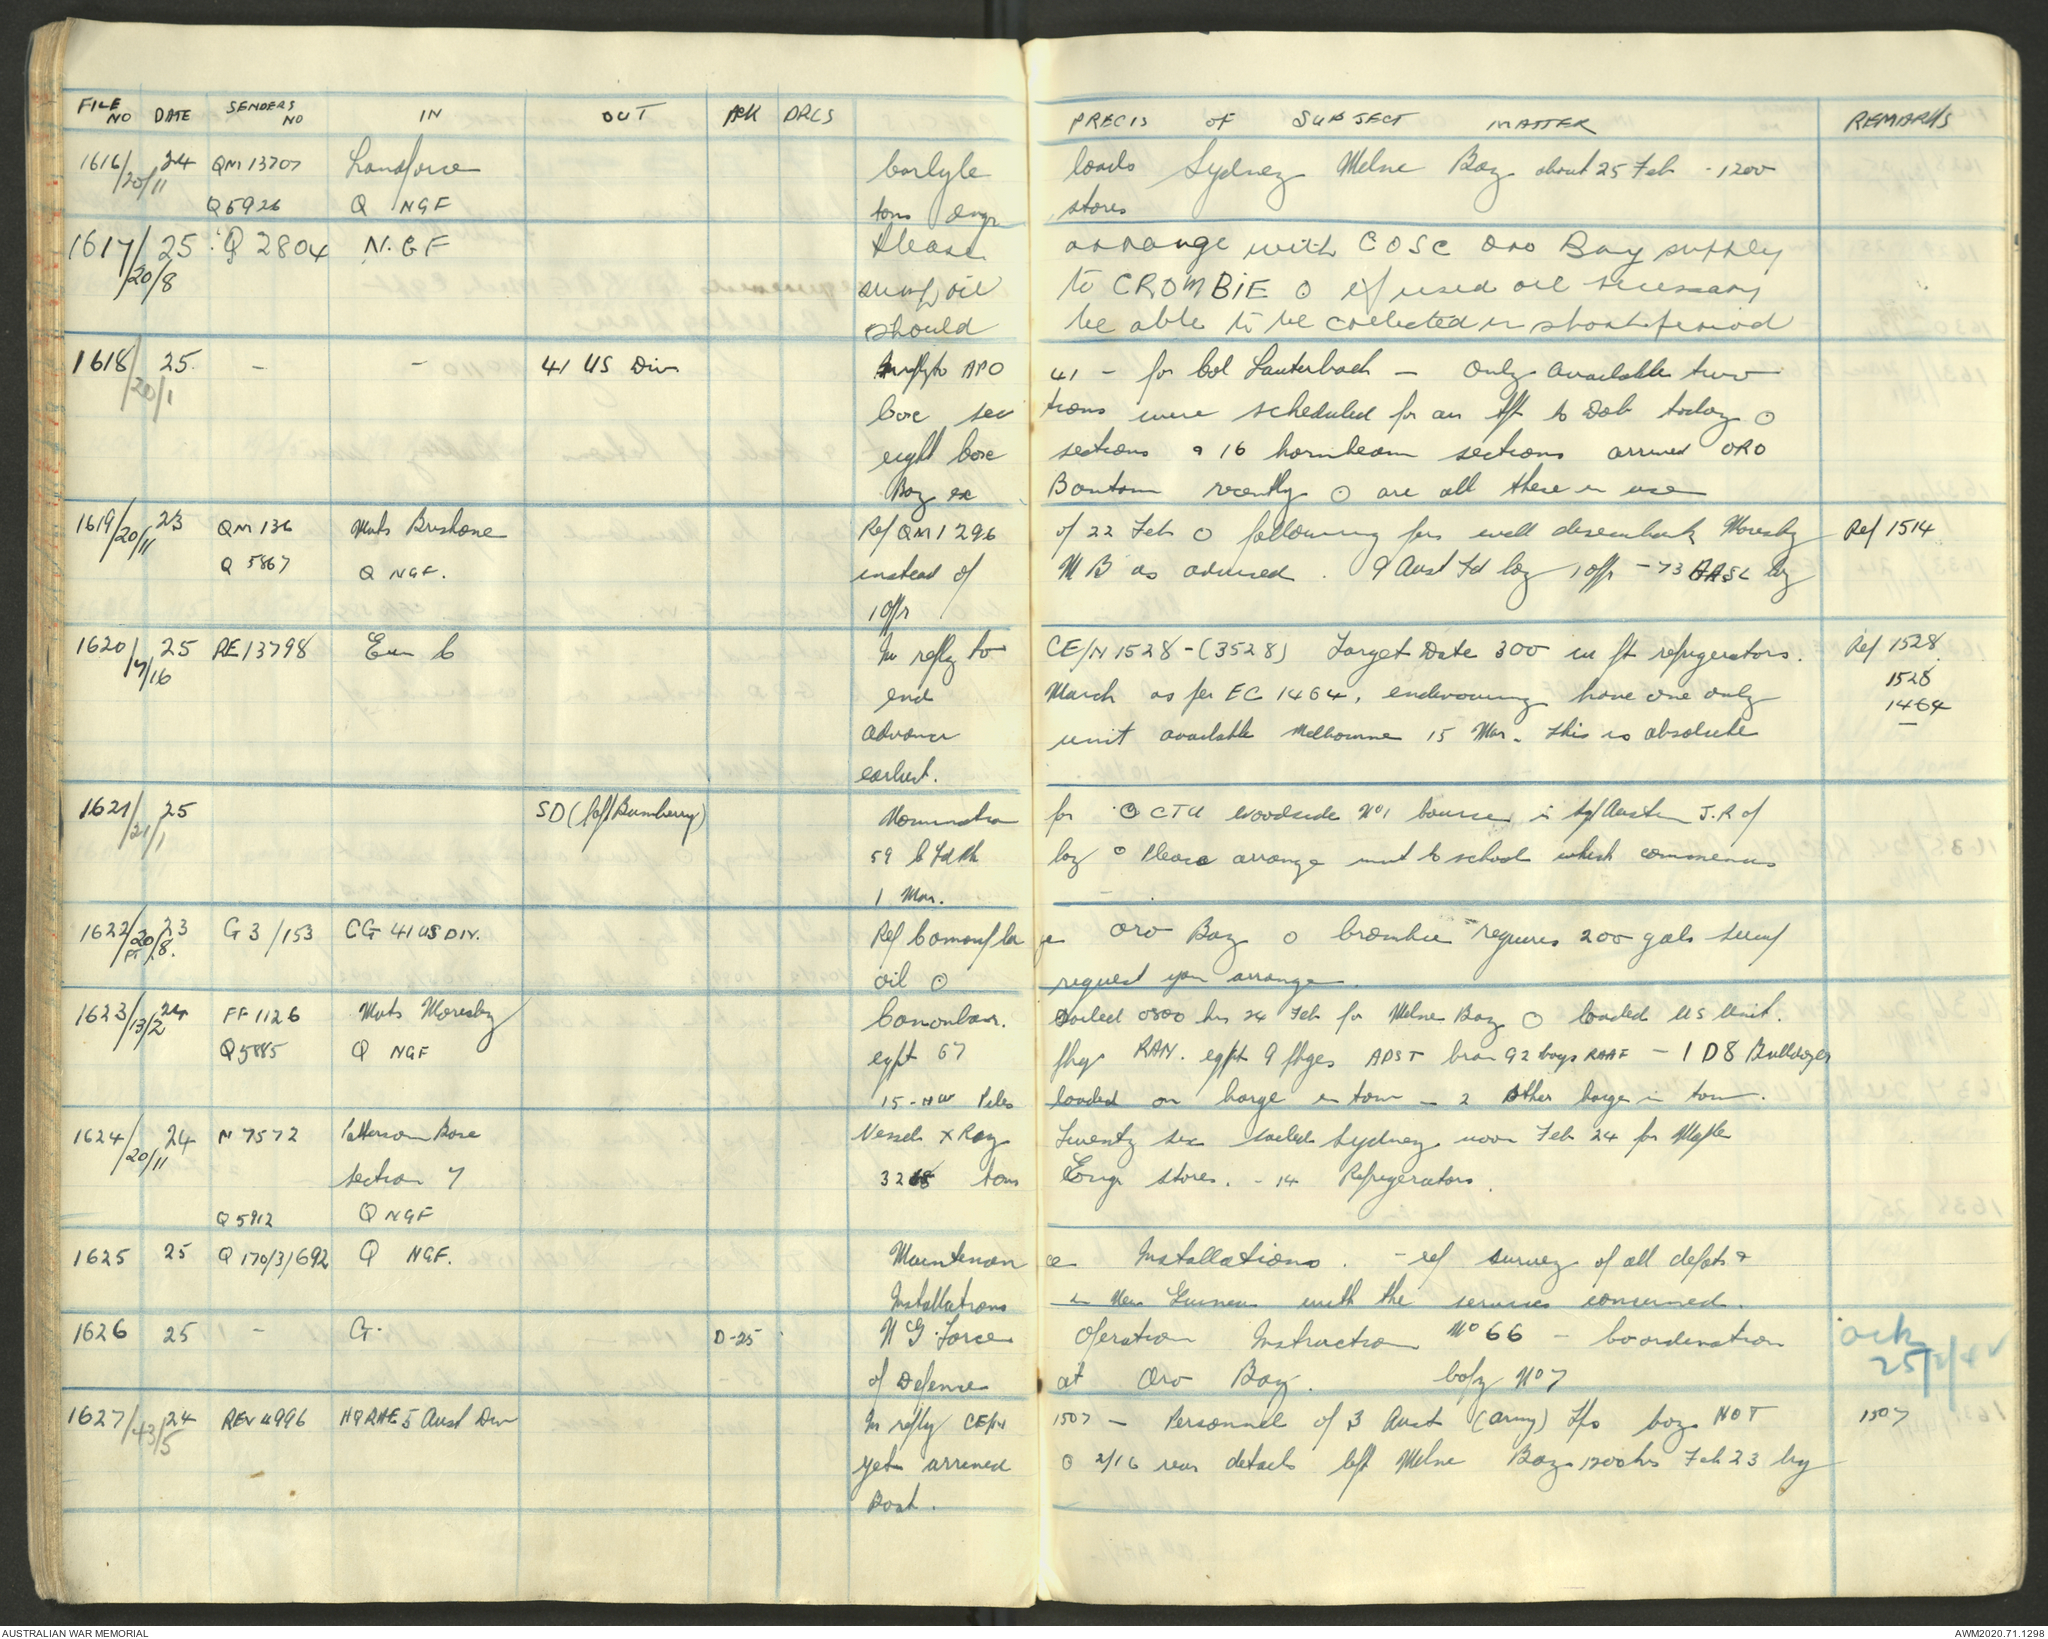 FILE NO DATE SENDERS NO IN OUT ACK DRLS PRECIS OF SUBJECT MATTER REMARKS
1616/20/11 24 QM 13707 Landforce Carlyle loads Sydney Milne Bay about 25 Feb - 1200
Q5926 Q NGF tons Engr stores
1617/20/8 25 Q 2804 N.G.F Please arrange with COSC Oro Bay supply
sump oil to CROMBIE ⊙ if used oil necessary
should be able to be collected in short period
1618/20/1 25 - - 41 US Div In reply to APO 41 - for Col Lauterbach - Only available two
Cove sec tions were scheduled for air tpt to Dob today ⊙
eight Cove sections & 16 hornbeam sections arrived ORO
Bay ex Bantam recently ⊙ are all these in use
1619/20/11 23 QM 136 Mvts Brisbane Ref QM 1296 of 22 Feb ⊙ following pers will disembark Moresby Ref 1514
Q 5867 Q NGF. instead of M B as advised. 9 Aust Fd Coy 1 offr - 73 AASL Coy
1 Offr
1620/7/16 25 RE 13798 Ein C In reply to CE/N 1528 - (3528) Target Date 300 cu ft refrigerators. Ref 1528
end March as per EC 1464, endevouring have one only 1528
advance unit available Melbourne 15 Mar. This is absolute 1464
earliest.
1621/21/1 25 SD (Capt Bumberry) Nomination for ⊙ CTU Woodside No 1 Course is Sgt Austin J.R of
59 C Fd Pk Coy ⊙ Please arrange mvt to school which commences
1 Mar.
1622/20/8. Pt 23 G3/153 CG 41 US DIV. Ref Camouflage Oro Bay ⊙ Crombie requires 200 gals sump
oil ⊙ request you arrange.
1623/13/2 24 FF 1126 Mvts Moresby Canonbar. Sailed 0800 hrs 24 Feb for Milne Bay ⊙ loaded US Unit.
Q5885 Q NGF eqpt 67 pkgs RAN. eqpt 9 pkges ADST bran 92 bags RAAF - 1 D8 Bulldozer
15 - HW Piles loaded on barge in tow - 2 other barges in tow.
1624/20/11 24 N 7572 Patterson Base Vessel X Ray Twenty six sailed Sydney noon Feb 24 for Maple
section 7 3265 tons Engr stores. - 14 Refrigerators.
Q5912 Q NGF
1625 25 Q 170/3/692 Q NGF. Maintenance Installations. - ref survey of all defots &
Installations in New Guinea with the services concerned.
1626 25 - G. D-25 N G Force Operation Instruction No 66 - Coordination ack
of Defence at Oro Bay. Copy No 7 25/2/44
1627/43/5 24 REV 4996 HQ RAE 5 Aust Div In reply CE/N 1507 - Personnel of 3 Aust (Army) Tps Coy NOT 1507
yet arrived ⊙ 2/16 rear details left Milne Bay 1200 hrs Feb 23 by
Boat.
AUSTRALIAN WAR MEMORIAL
AWM2020.71.1298